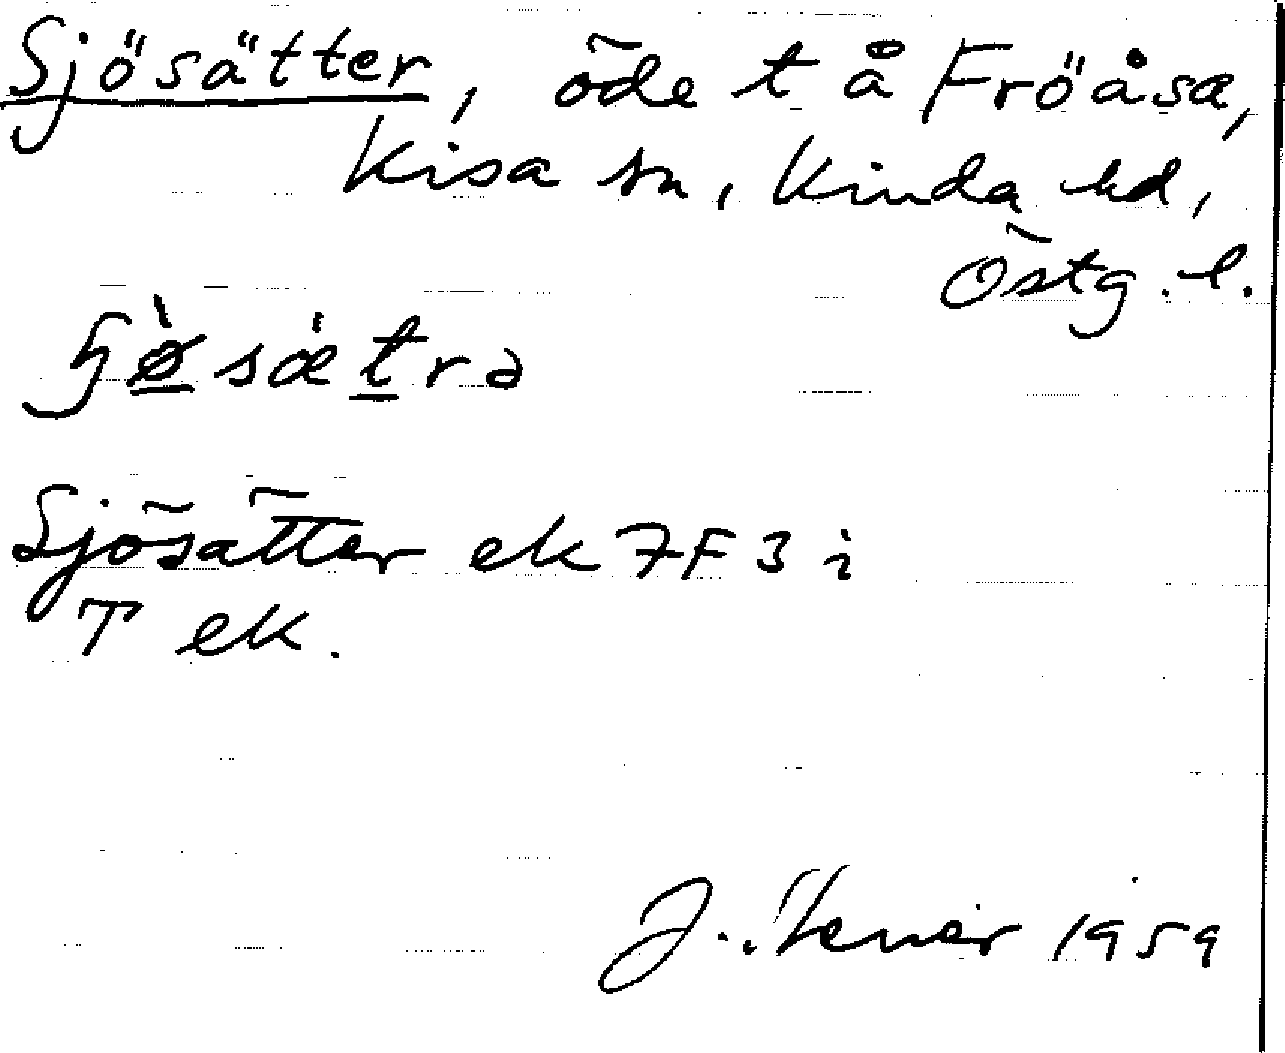 Sjösätter, öde t å Fröåsa,
Kisa sn, Kinda hd,
Östg. l.
ɧø̀sætrə
Sjösätter ek 7F3 i
T ek.
J. 1959